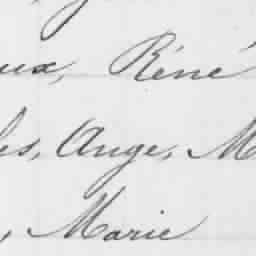 ux, Réné
les, Ange, M
, Marie